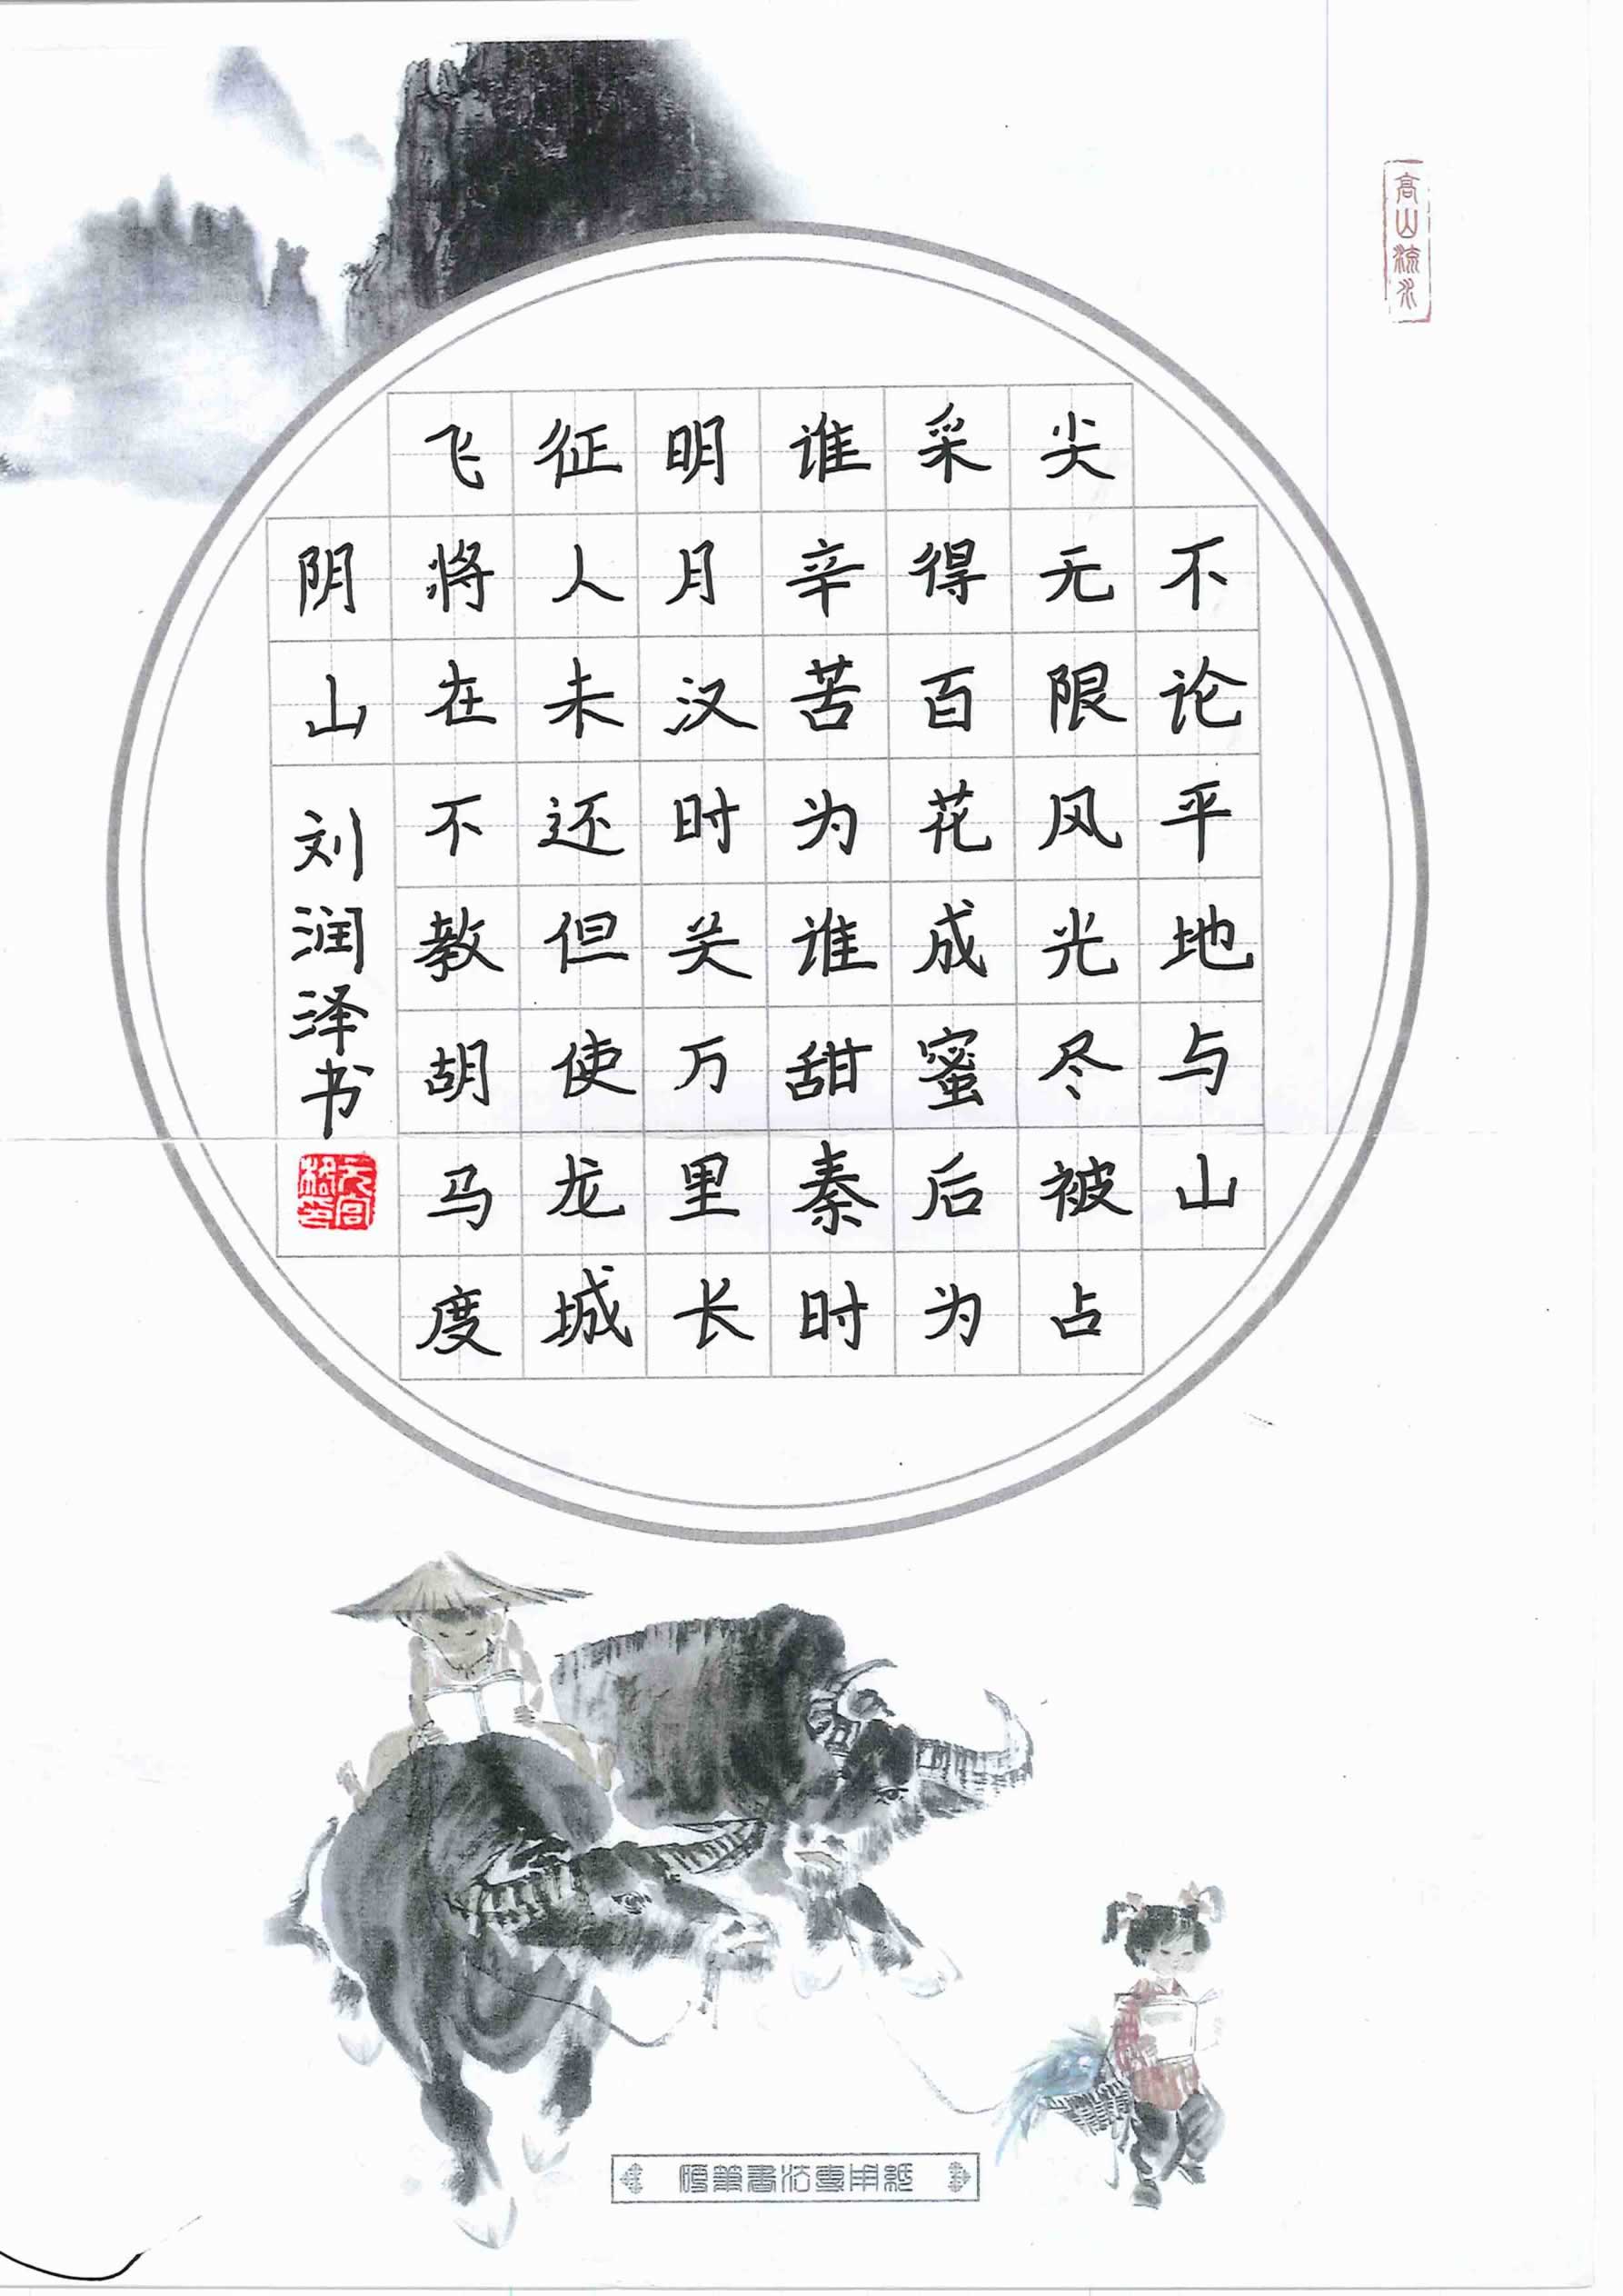 高山流水
不论平地与山
尖无限风光尽被占
采得百花成蜜后为
谁辛苦为谁甜秦时
明月汉时关万里长
征人未还但使龙城
飞将在不教胡马度
阴山
刘润泽书
硬笔书法专用纸